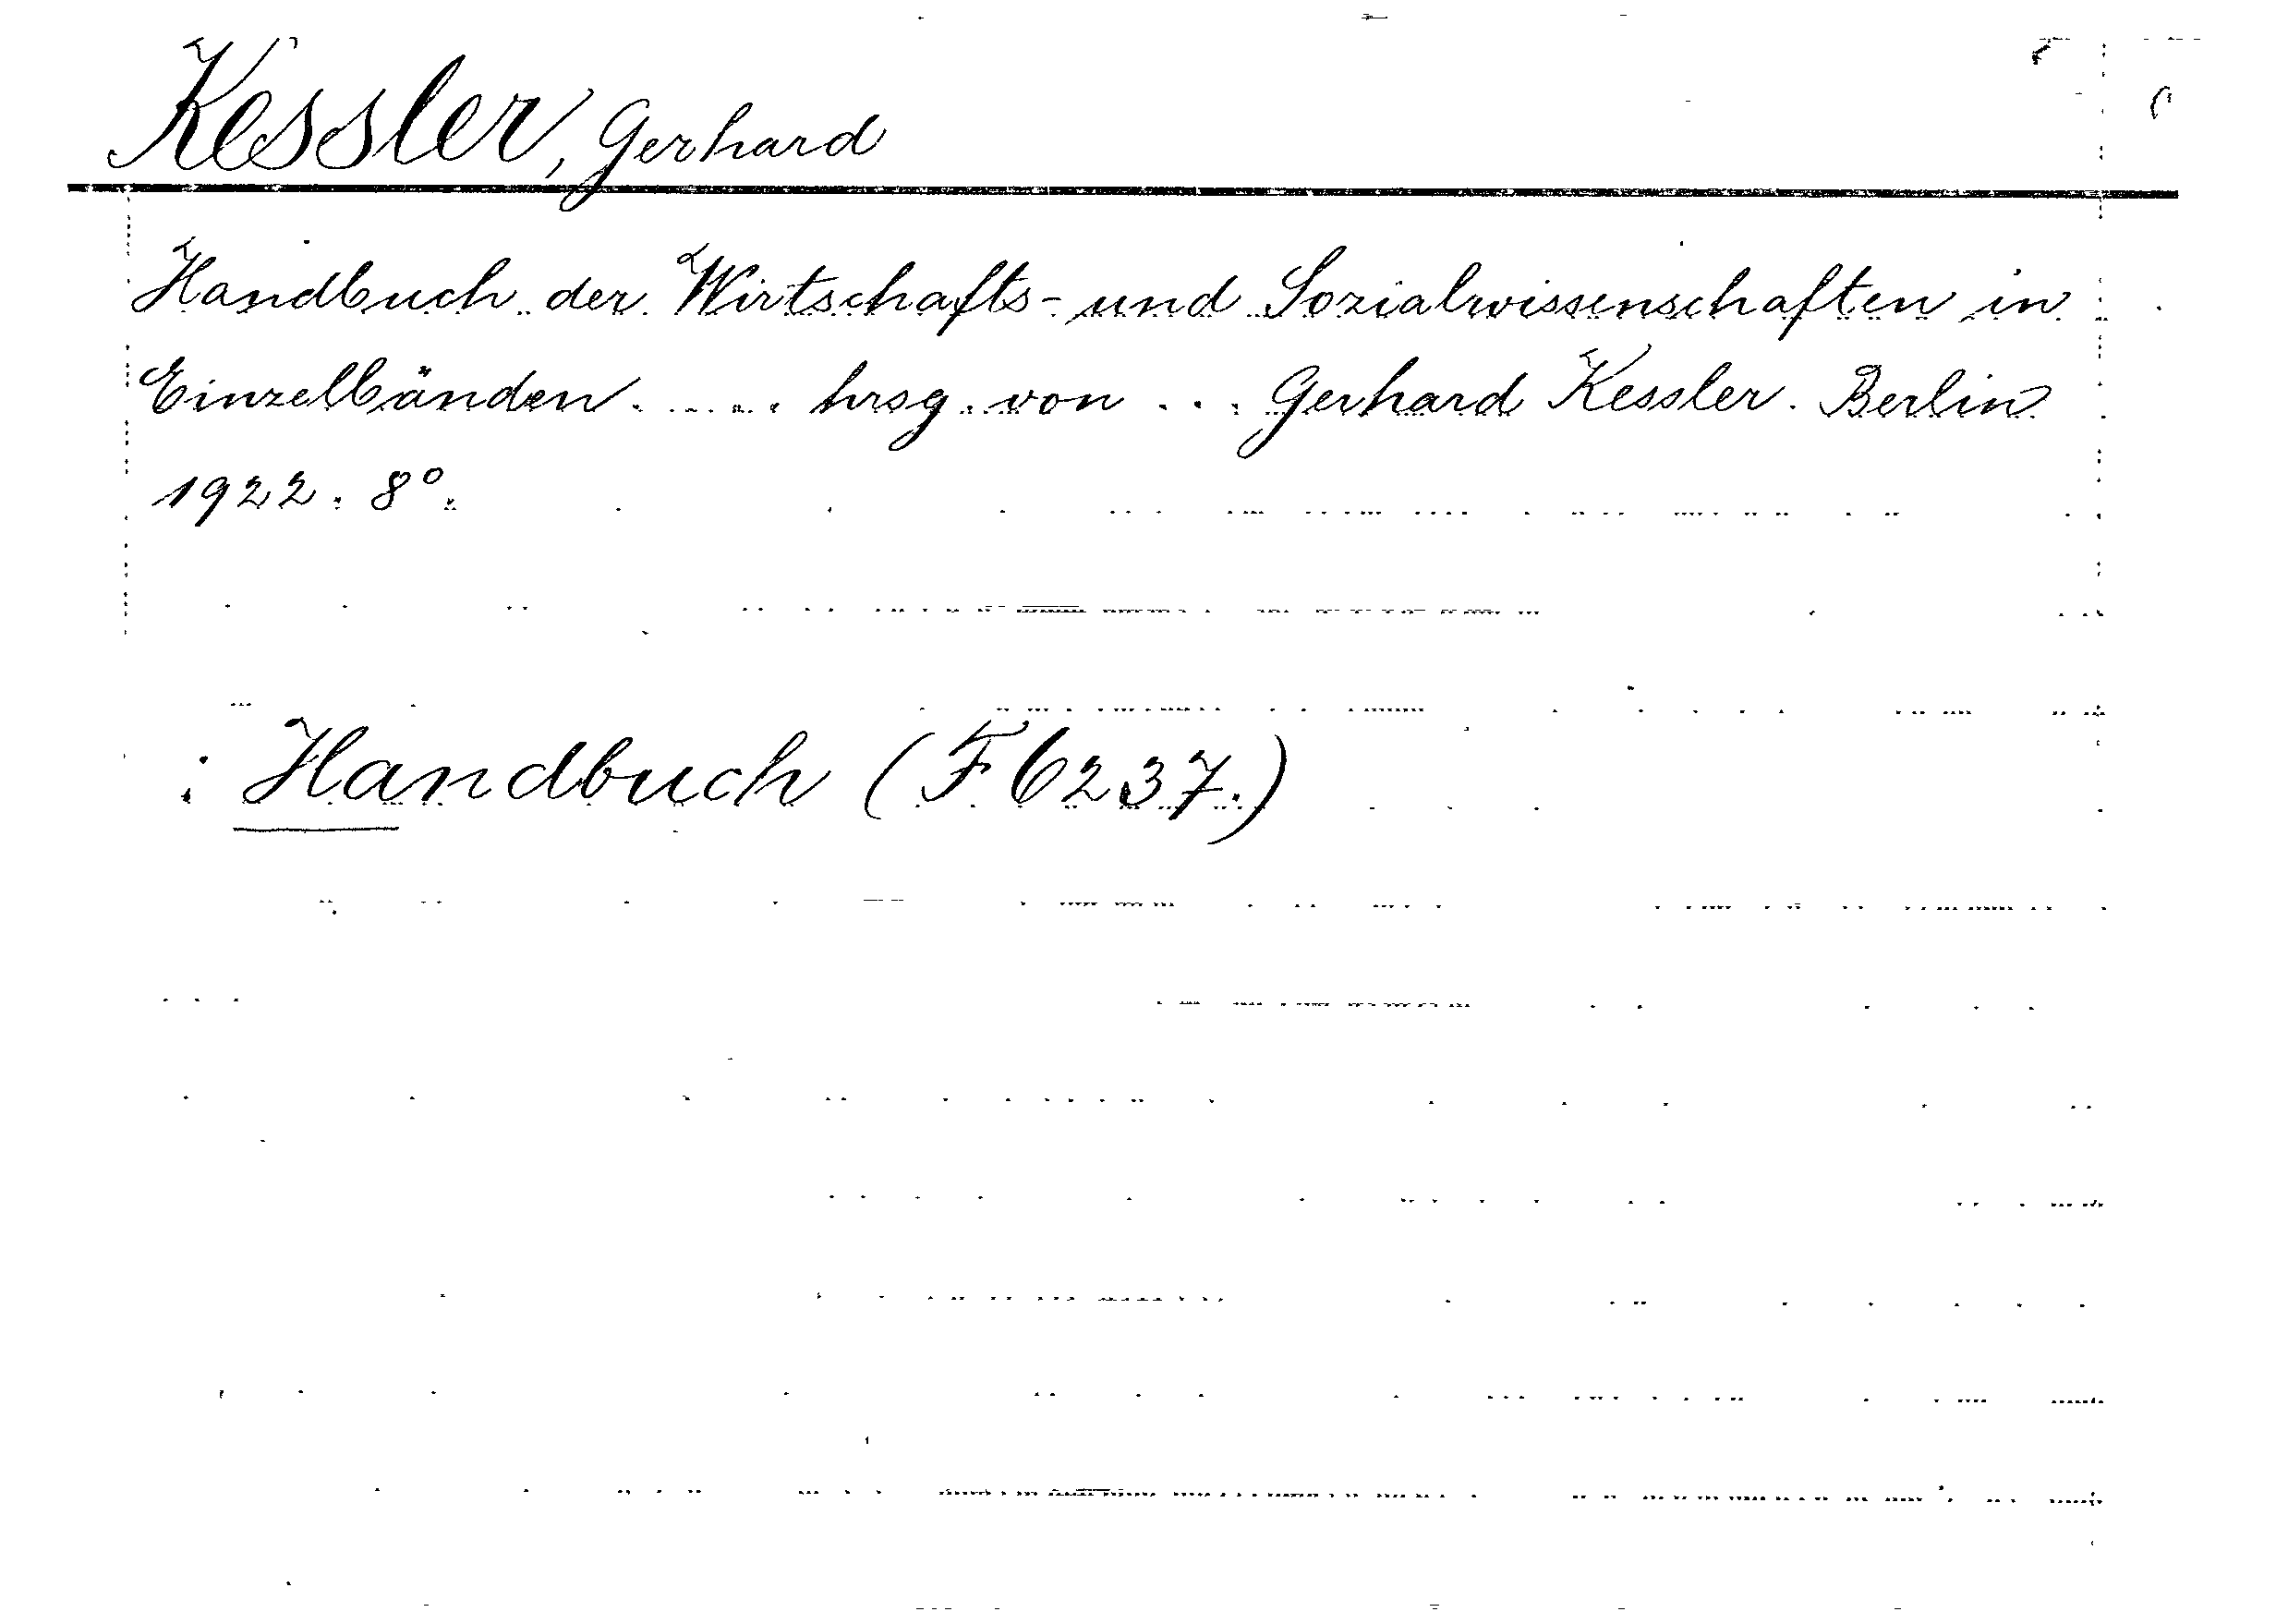 Kessler, Gerhard
Handbuch der Wirtschafts- und Sozialwissenschaften in
Einzelbänden ..... hrsg. von ... Gerhard Kessler. Berlin
1922. 8°.
: Handbuch (F 6237.)